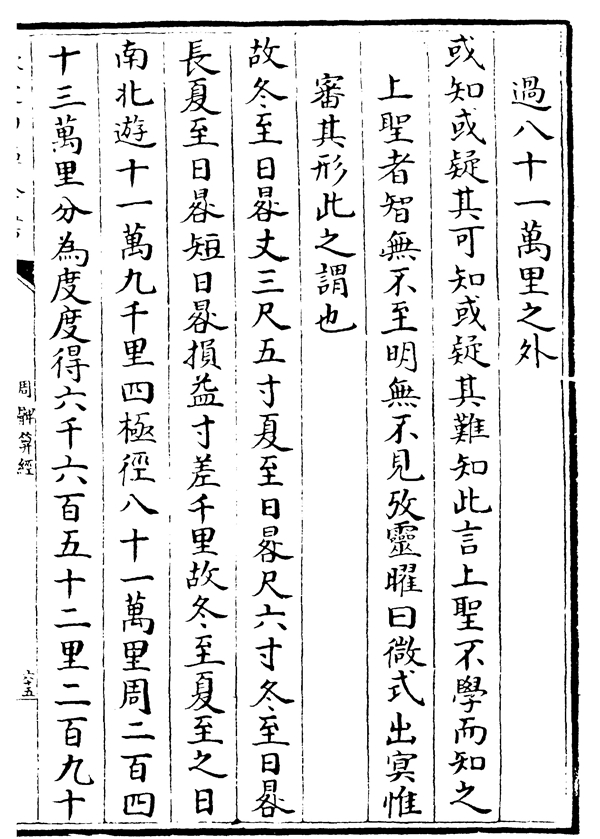 過八十一萬里之外
或知或疑其可知或疑其難知此言上聖不學而知之
上聖者智無不至明無不見攷靈曜曰微式出冥惟
審其形此之謂也
故冬至日晷丈三尺五寸夏至日晷尺六寸冬至日晷
長夏至日晷短日晷損益寸差千里故冬至夏至之日
南北遊十一萬九千里四極徑八十一萬里周二百四
十三萬里分為度度得六千六百五十二里二百九十
周髀算經
六十五